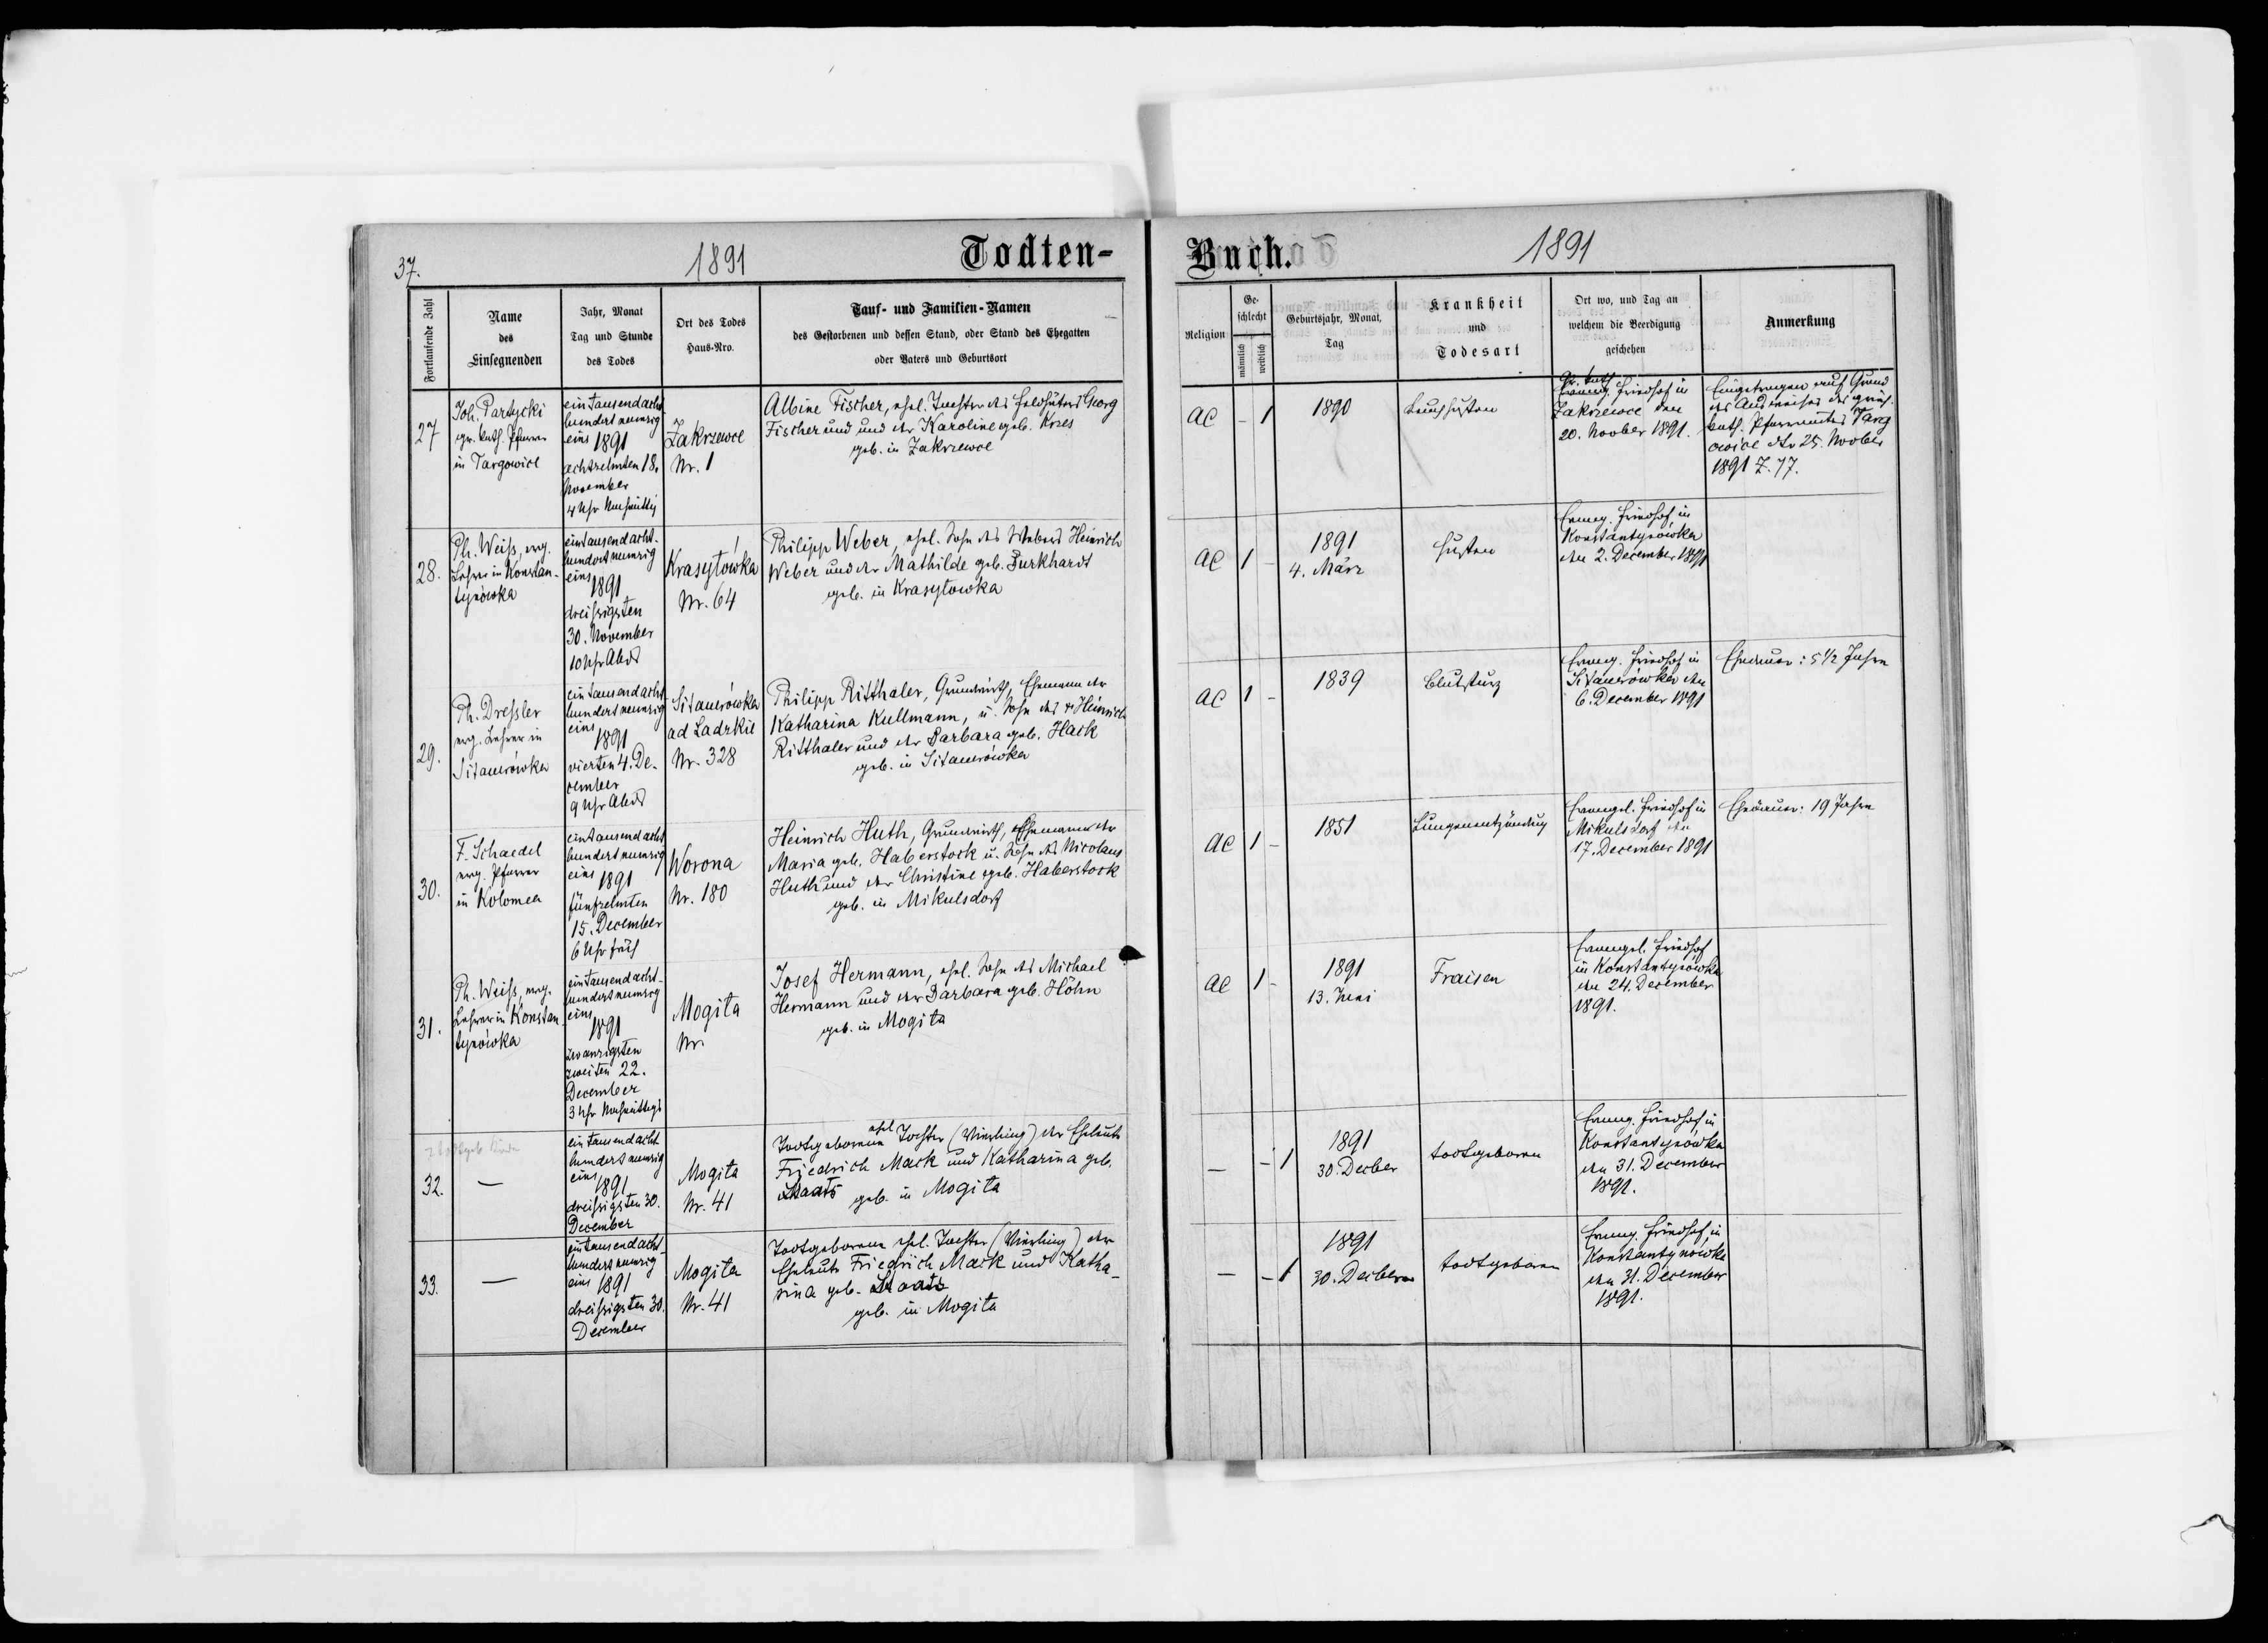 37.
1891
Todten-
Buch.
1891
Fortlaufende Zahl
Name
des
Einsegnenden
Jahr, Monat
Tag und Stunde
des Todes
Ort des Todes
Haus-Nro.
Tauf- und Familien-Namen
des Gestorbenen und dessen Stand, oder Stand des Ehegatten
oder Vaters und Geburtsort
Religion
Ge-
schlecht
männlich
weiblich
Geburtsjahr, Monat,
Tag
Krankheit
und
Todesart
Ort wo, und Tag an
welchem die Beerdigung
geschehen
Anmerkung
27
Joh. Partycki
gr. kath. Pfarrer
in Targowice
ein tausend acht-
hundert neunzig
eins 1891
achtzehnten 18.
November
4 Uhr Nachmittg
Zakrzewce
Nr. 1
Albine Fischer, ehel. Tochter des Feldhüters Georg
Fischer und und der Karoline geb. Kozes
geb. in Zakrzewce
AC
- 1
1890
Keuchhusten
Gr. kath.
Evang. Friedhof in
Zakrzewce den
20. Novber 1891.
Eingetragen auf Grund
des Ausweises des griech.
kath. Pfarramtes Targ
owice dto 25. Novber
1891 Z. 77.
28.
Ph. Weiß, evg.
Lehrer in Konstan-
tynówka
eintausend acht-
hundert neunzig
eins
1891
dreißigsten
30. November
10 Uhr Abds
Krasyłówka
Nr. 64
Philipp Weber, ehel. Sohn des Webers Heinrich
Weber und der Mathilde geb. Burkhardt
geb. in Krasyłowka
AC
1 -
1891
4. März
Husten
Evang. Friedhof in
Konstantynówka
den 2. December 1891
29.
Ph. Dreßler
evg. Lehrer in
Sitauerówka
ein tausend acht
hundert neunzig
eins
1891
vierten 4. De-
cember
9 Uhr Abds
Sitauerówka
ad Ladzkie
Nr. 328
Philipp Ritthaler, Grundwirth, Ehemann der
Katharina Kullmann, u. Sohn des + Heinrich
Ritthaler und der Barbara geb. Hack
geb. in Sitauerówka
AC
1 -
1839
Blutsturz
Evang. Friedhof in
Sitauerówka den
6. December 1891
Ehedauer: 5 1/2 Jahre
30.
F. Schaedel
evg. Pfarrer
in Kolomea
eintausend acht
hundert neunzig
eins
1891
fünfzehnten
15. December
6 Uhr früh
Worona
Nr. 180
Heinrich Huth, Grundwirth, Ehemann der
Maria geb. Haberstock u. Sohn des Nicolaus
Huth und der Christine geb. Haberstock
geb. in Mikulsdorf
AC
1 -
1851
Lungenentzündung
Evangel. Friedhof in
Mikulsdorf den
17. December 1891
Ehedauer: 19 Jahre
31.
Ph. Weiß, evg.
Lehrer in Konstan-
tynówka
ein tausend acht-
hundert neunzig
eins
1891
zwanzigsten
zweiten 22.
December
3 Uhr Nachmittags
Mogiła
Nr.
Josef Hermann, ehel. Sohn des Michael
Hermann und der Barbara geb. Höhn
geb. in Mogiła
AC
1 -
1891
13. Juni
Fraisen
Evangel. Friedhof
in Konstantynówka
den 24. December
1891.
32.
—
ein tausend acht
hundert neunzig
eins
1891
dreißigsten 30.
December
Mogiła
Nr. 41
Todtgeborene ehel Tochter (Vierling) der Eheleute
Friedrich Mack und Katharina geb.
Staats
geb. in Mogiła
—
- 1
1891
30. Decber
todtgeboren
Evang. Friedhof in
Konstantynówka
den 31. December
1891.
33.
—
ein tausend acht-
hundert neunzig
eins 1891
dreißigsten 30.
December
Mogiła
Nr. 41
Todtgeborene ehel. Tochter (Vierling) der
Eheleute Friedrich Mack und Katha-
rina geb. Staats
geb. in Mogiła
—
- 1
1891
30. Decber
todtgeboren
Evang. Friedhof in
Konstantynówka
den 31. December
1891.